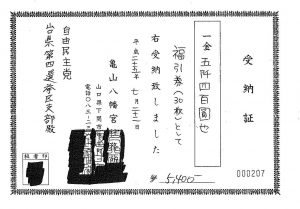 受納証
一金 五阡四百圓也
福引券(30枚)として
右受納致しました
平成二十五年 七月 二十二日
亀山八幡宮
山口県下関市
電話〇八三-二
自由民主党
山口県第四選挙区支部殿
扱者印
¥ 5,400-
000207